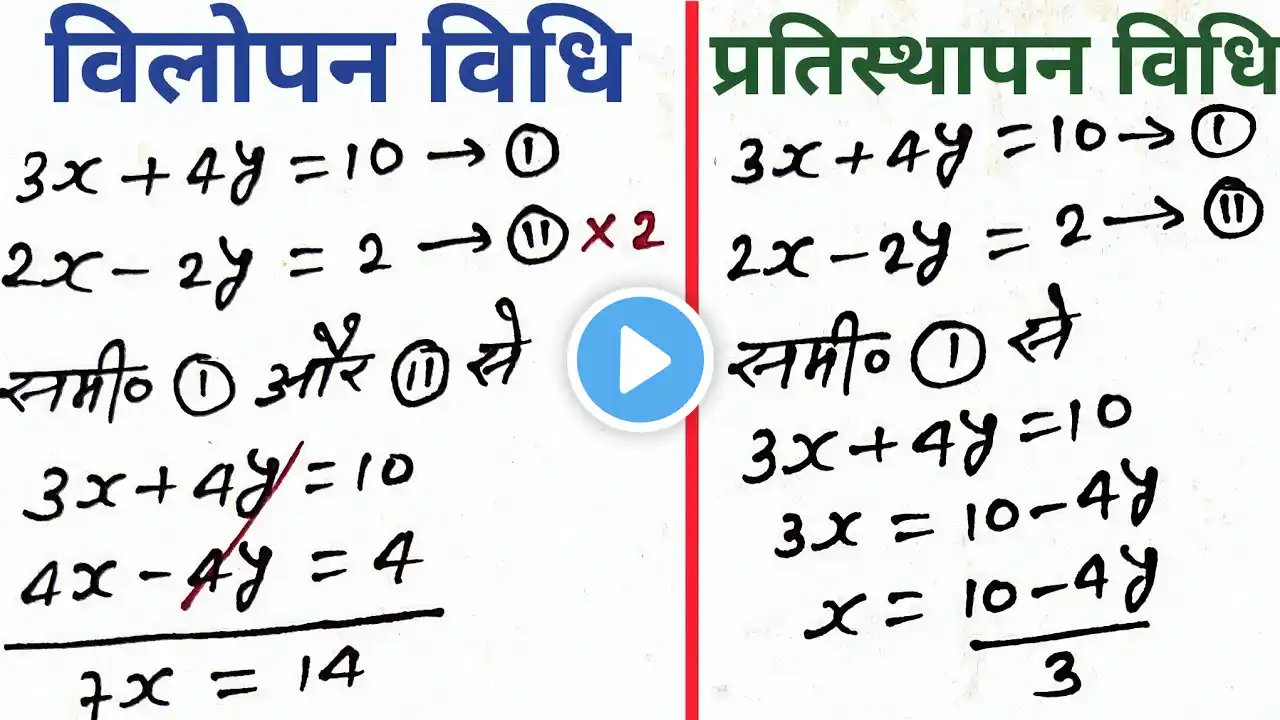 विलोपन विधि
3x + 4y = 10 → ①
2x - 2y = 2 → ⑪ × 2
समी० ① और ⑪ से
3x + 4y = 10
4x - 4y = 4
7x = 14
प्रतिस्थापन विधि
3x + 4y = 10 → ①
2x - 2y = 2 → ⑪
समी० ① से
3x + 4y = 10
3x = 10 - 4y
x = 10 - 4y
3